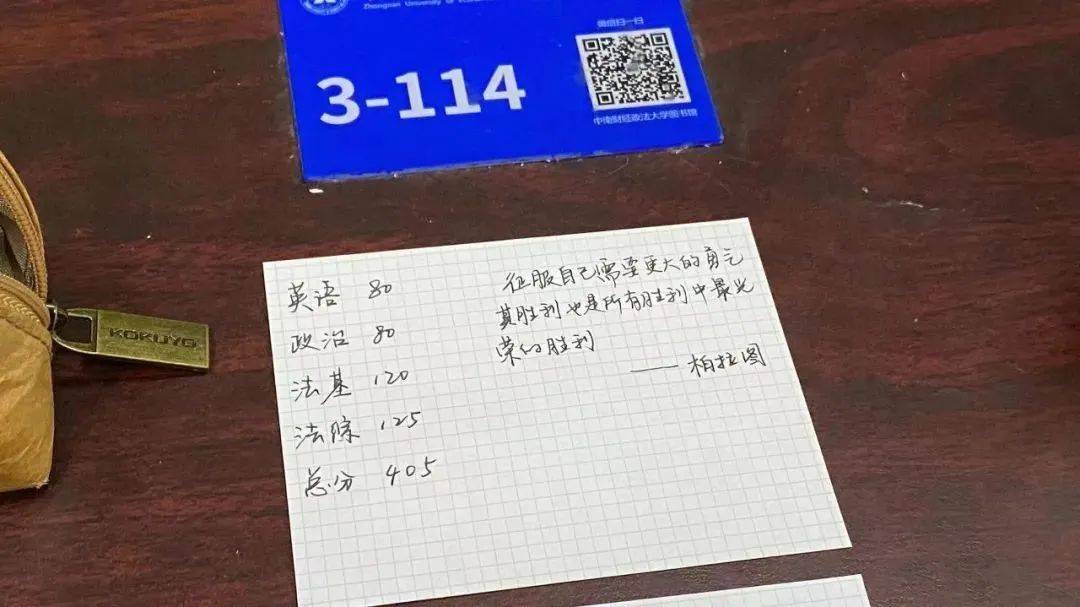 Zhongnan University of Econom
微信扫一扫
3-114
中南财经政法大学图书馆
KOKUYO
英语 80
政治 80
法基 120
法综 125
总分 405
征服自己需要更大的勇气
其胜利也是所有胜利中最光
荣的胜利
—— 柏拉图